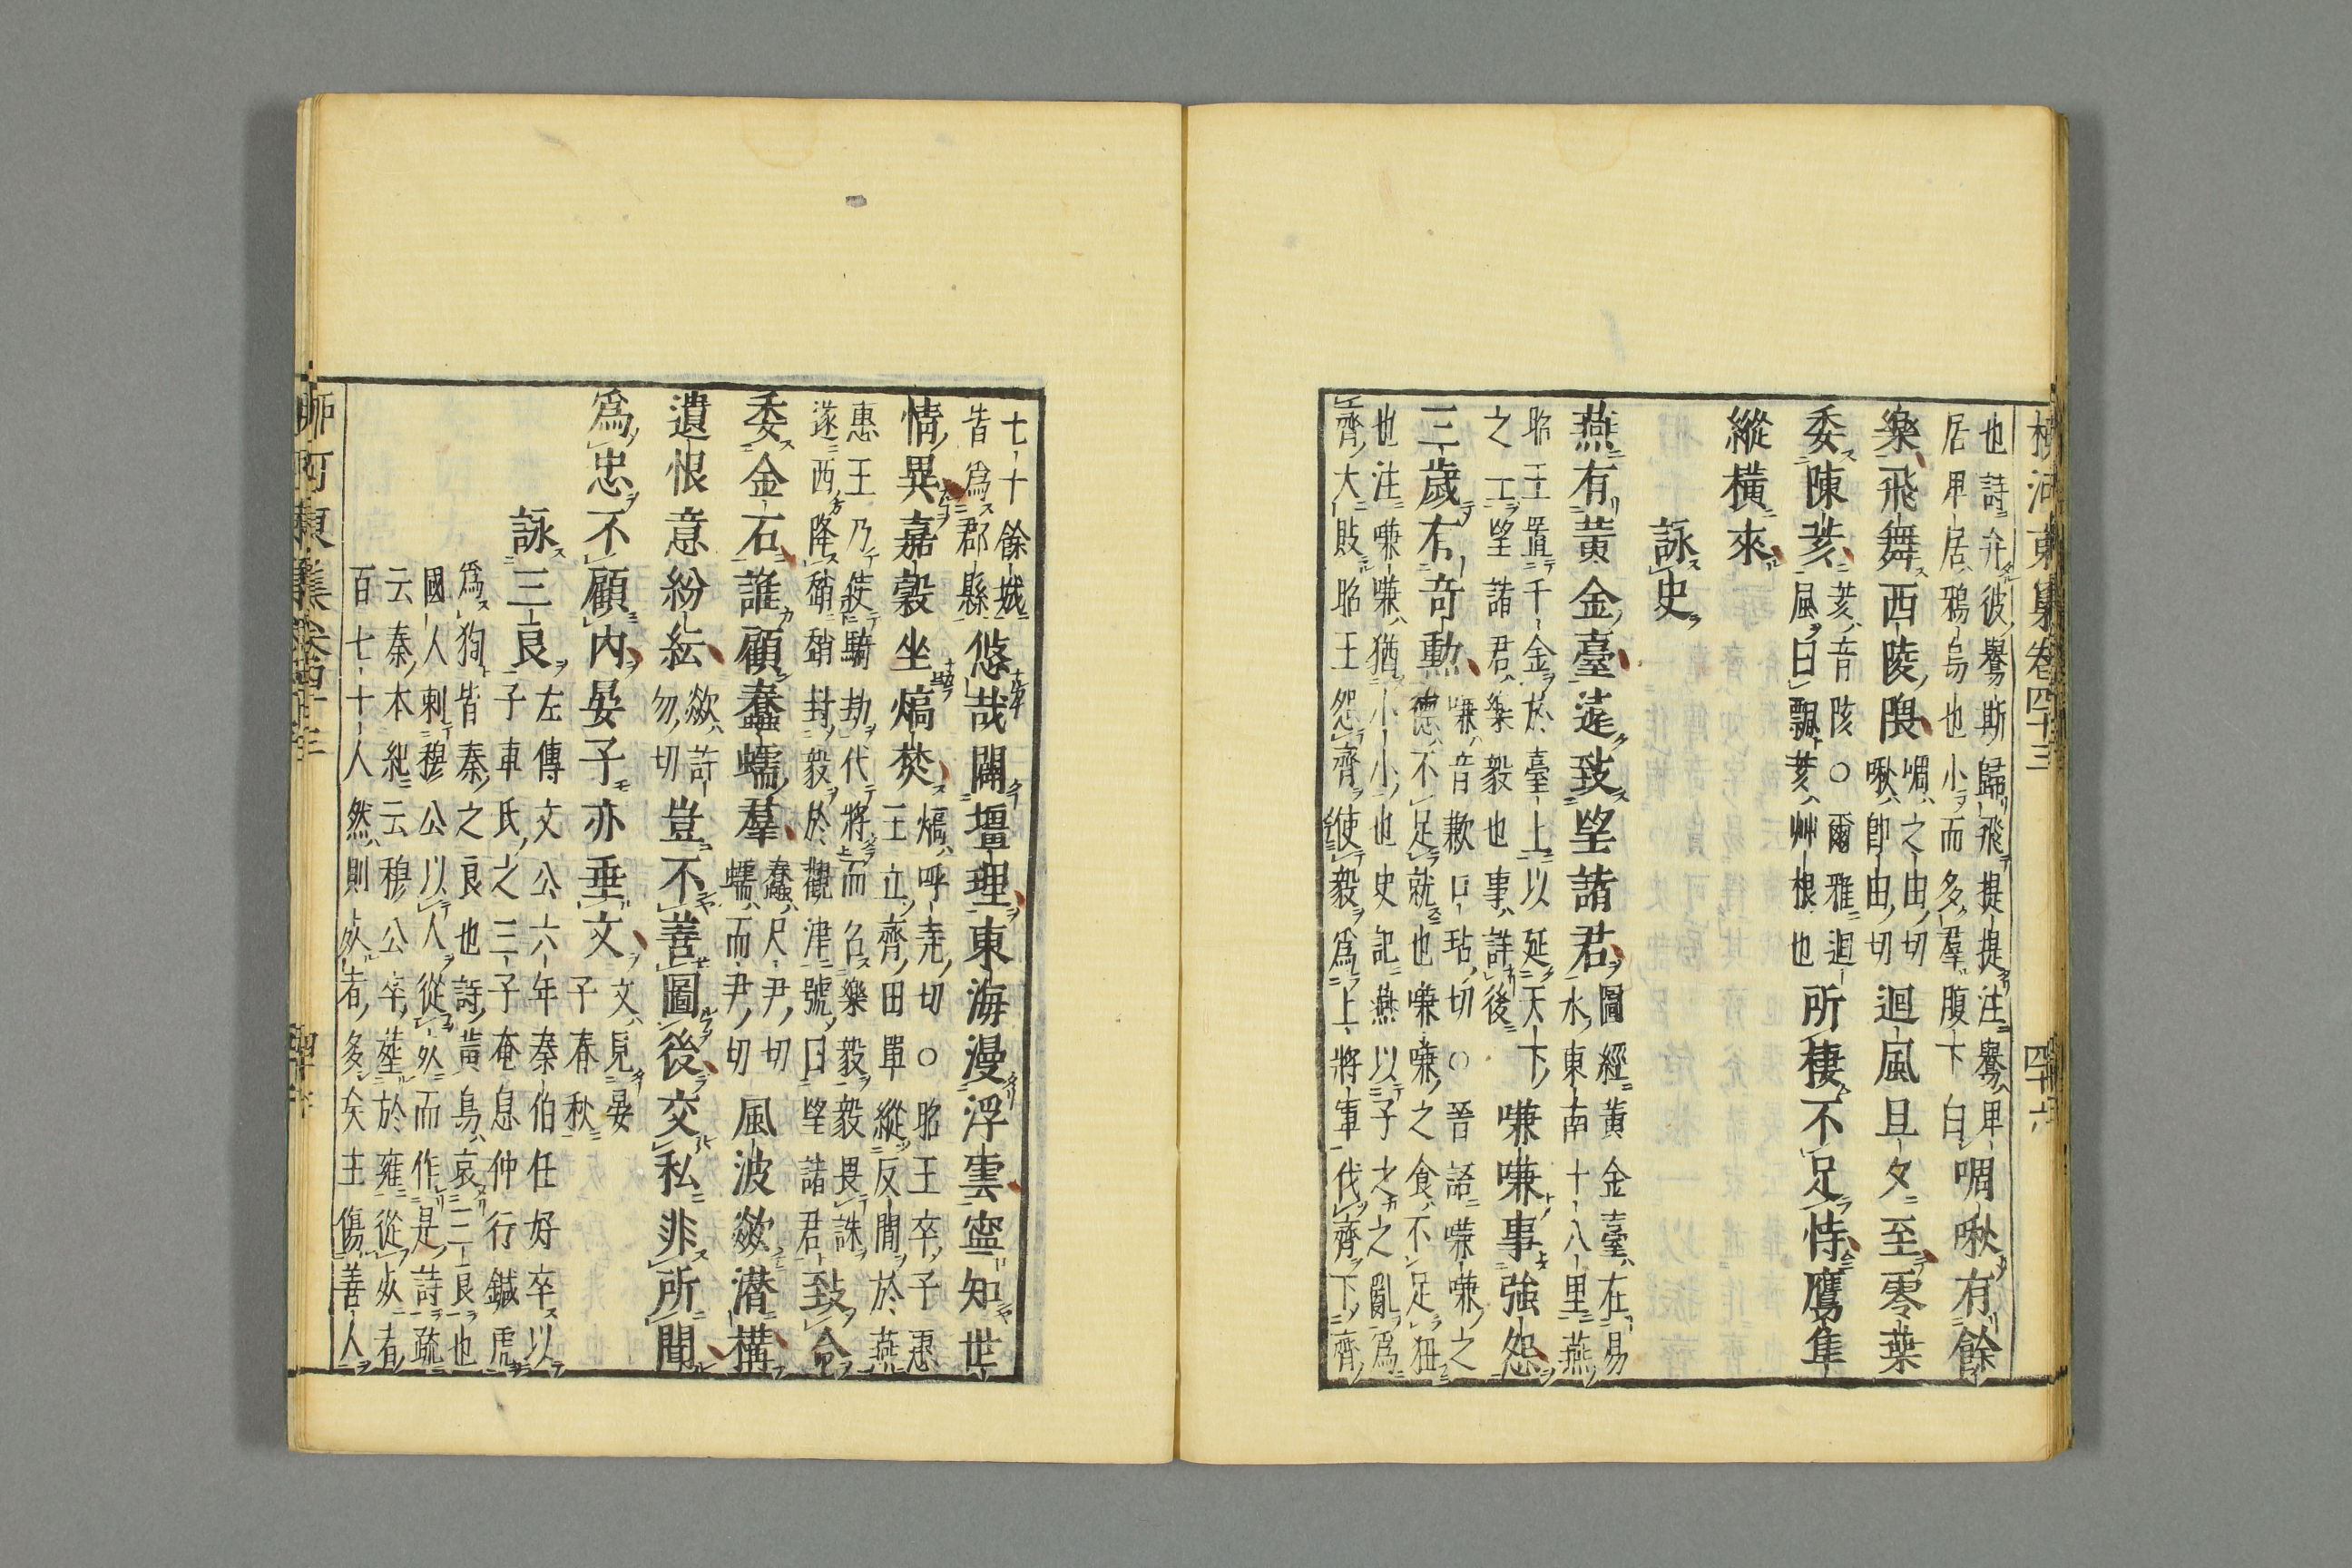 柳河東集卷四十三 四十六
也詩弁彼鸒斯歸飛提提注鸒卑
居卑居鴉烏也小而多群腹下白啁啾有餘
樂飛舞西陵隈啁之由切
啾即由切迴風旦夕至零葉
委陳荄荄音陔○爾雅迴
風曰飄荄艸根也所棲不足恃鷹隼
縱橫來
詠史
燕有黃金臺遠致望諸君圖經黃金臺在易
水東南十八里燕
昭王置千金於臺上以延天下
之士望諸君樂毅也事詳後嗛嗛事強怨
三歲有奇勳嗛音歉口玷切○晉語嗛嗛之
德不足就也嗛嗛之食不足狃
也注嗛嗛猶小小也史記燕以子之之亂為
齊大敗昭王怨齊使毅為上將軍伐齊下齊
七十餘城
皆爲郡縣悠哉闢壇理東海漫浮雲寧知世
情異嘉穀坐熇焚熇呼堯切○昭王卒子惠
王立齊田單縱反間於燕
惠王乃使騎劫代將而召樂毅毅畏誅
遂西降趙趙封毅於觀津號曰望諸君致令
委金石誰顧蠢蠕羣蠢尺尹切
蠕而尹切風波欻潛構
遺恨意紛紜欻許
勿切豈不善圖後交私非所聞
爲忠不顧內晏子亦垂文文見晏
子春秋
詠三良左傳文公六年秦伯任好卒以
子車氏之三子奄息仲行鍼虎
爲狥皆秦之良也詩黃鳥哀三良也
國人刺穆公以人從死而作是詩疏
云秦本紀云穆公卒葬於雍從死者
百七十人然則死者多矣主傷善人